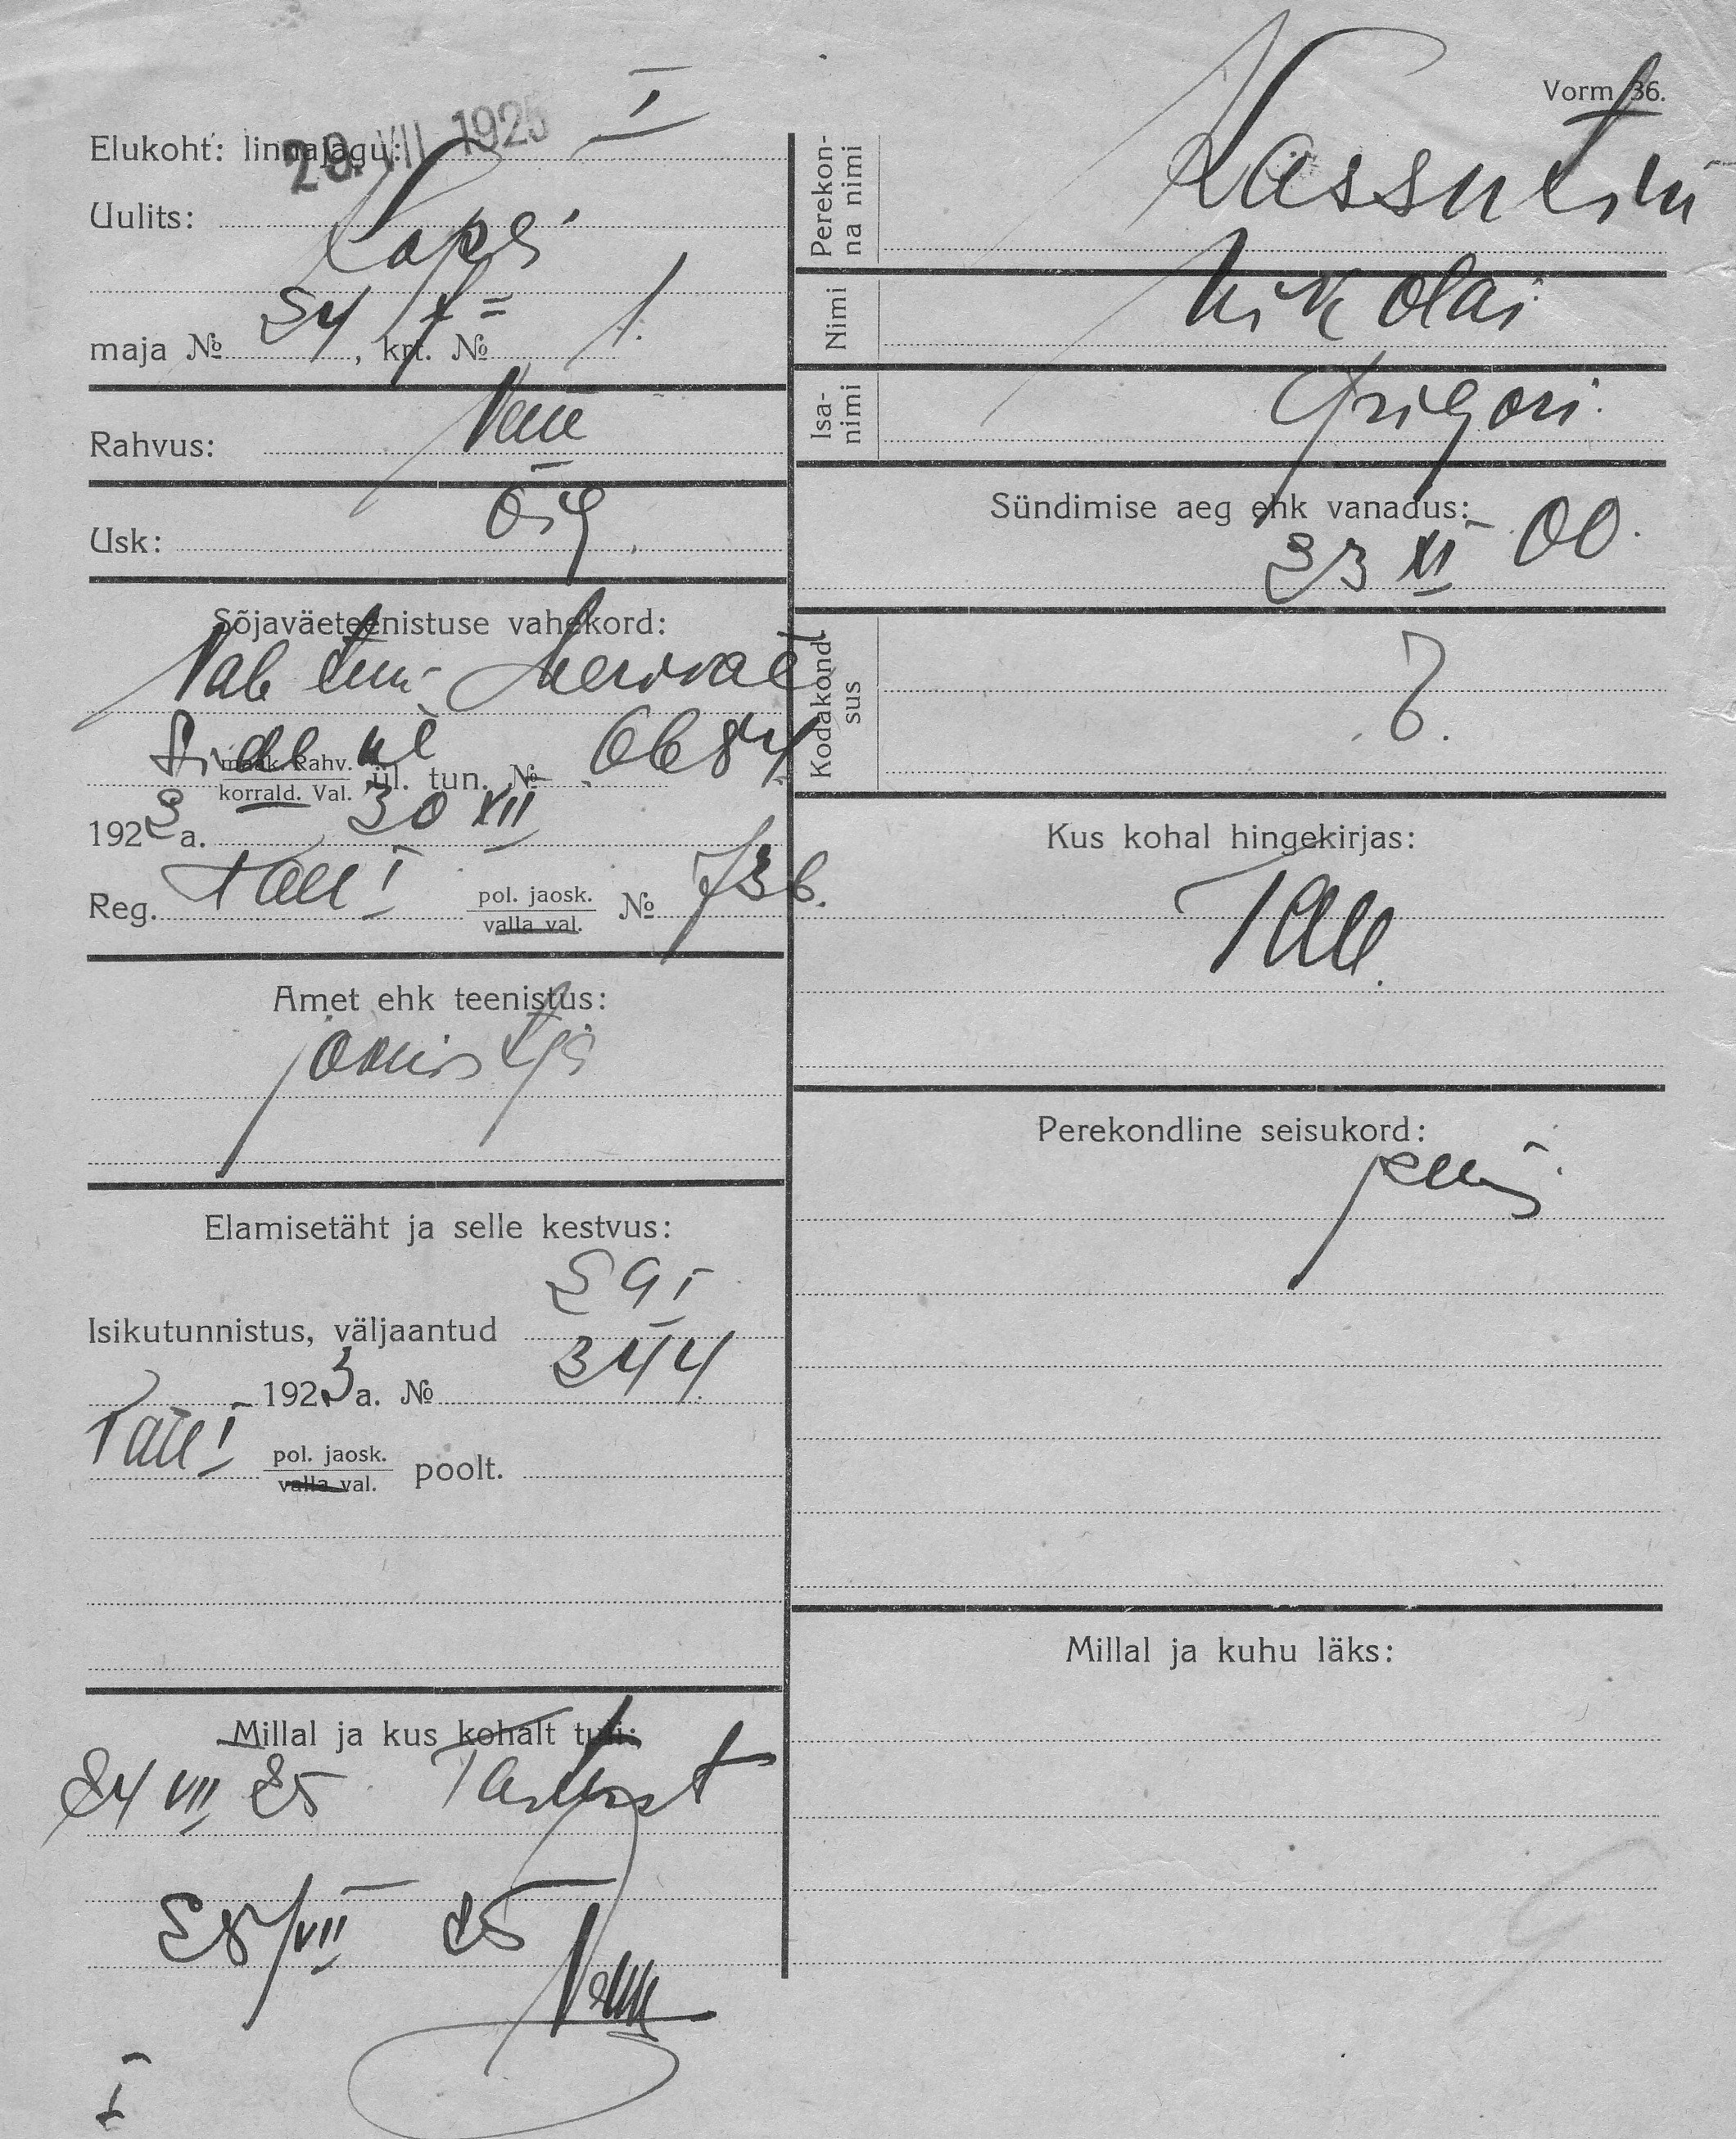 Vorm 36.
29. VII 1925
Elukoht: linnajagu: I
Uulits: Kopli
maja № 24, krt. № 1.
Rahvus: Vene
Usk: õig
Sõjaväeteenistuse vahekord:
Vab tun. Meriväe
maak. Rahv. korrald. Val. ül. tun. № 0684
1923 a. 30 XII
Reg. Tall I pol. jaosk. valla val. № 736.
Amet ehk teenistus:
joonistaja
Elamisetäht ja selle kestvus:
Isikutunnistus, väljaantud 29 I
1923 a. № 3444
Tall I pol. jaosk. valla val. poolt.
Millal ja kus kohalt tuli:
24 VII 25 Tartust
28/VII 25
I
Perekonna nimi Kassutin
Nimi Nikolai
Isanimi Grigori
Sündimise aeg ehk vanadus:
23 XI 00.
Kodakondsus
Kus kohal hingekirjas:
Tall.
Perekondline seisukord:
Millal ja kuhu läks: